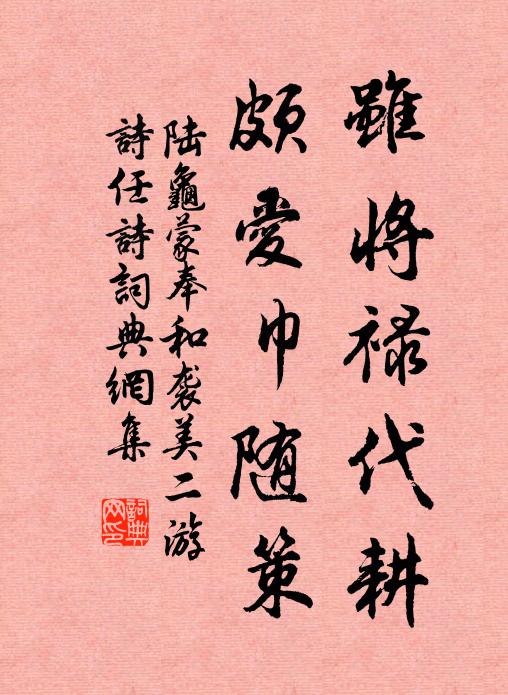 雖將祿代耕
頗愛巾随策
陆龜蒙奉和袭美二游
詩任詩詞典網集
詞典
网印